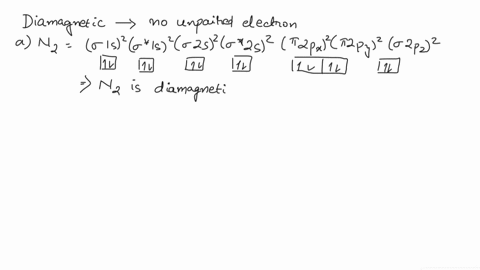 Diamagnetic → no unpaired electron
a) N₂ = (σ1s)² (σ*1s)² (σ2s)² (σ*2s)² (π2pₓ)² (π2p_y)² (σ2p_z)²
↑↓ ↑↓ ↑↓ ↑↓ ↑↓ ↑↓ ↑↓
⇒ N₂ is diamagneti